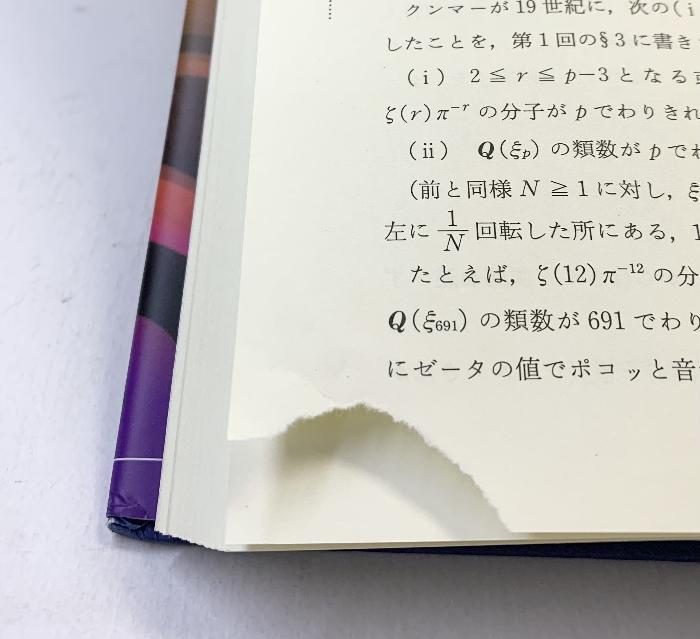 クンマーが19世紀に，次の(i
したことを，第1回の§3に書き
(i) 2≦r≦p−3となる
ζ(r)π⁻ʳの分子がpでわりきれ
(ii) Q(ξₚ)の類数がpでわ
(前と同様N≧1に対し，ξ
左に 1/N 回転した所にある，1
たとえば，ζ(12)π⁻¹²の分
Q(ξ₆₉₁)の類数が691でわり
にゼータの値でポコッと音